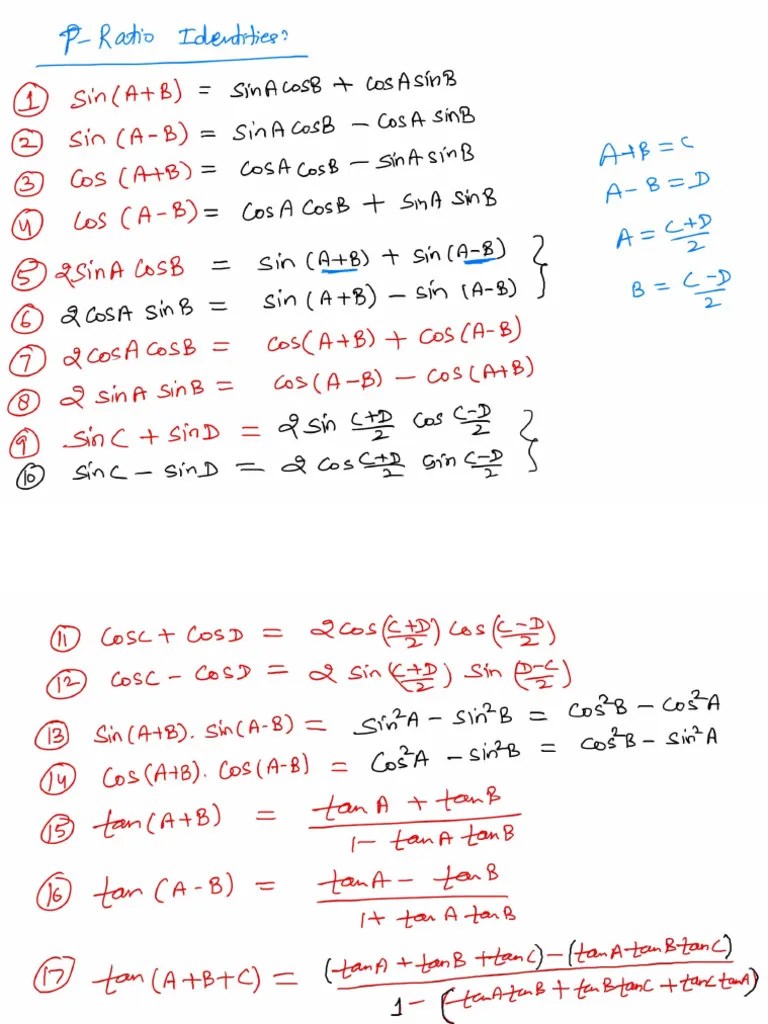 P-Ratio Identities:
① sin(A+B) = sinA cosB + cosA sinB
② sin (A-B) = sinA cosB - cosA sinB
③ cos (A+B) = cosA cosB - sinA sinB
④ cos (A-B) = cosA cosB + sinA sinB
A+B = C
A-B = D
A = C+D/2
B = C-D/2
⑤ 2 sinA cosB = sin (A+B) + sin (A-B)
⑥ 2 cosA sinB = sin (A+B) - sin (A-B)
⑦ 2 cosA cosB = cos(A+B) + cos (A-B)
⑧ 2 sinA sinB = cos (A-B) - cos (A+B)
⑨ sinC + sinD = 2 sin C+D/2 cos C-D/2
⑩ sinC - sinD = 2 cos C+D/2 sin C-D/2
⑪ cosC + cosD = 2 cos(C+D/2) cos(C-D/2)
⑫ cosC - cosD = 2 sin (C+D/2) sin (D-C/2)
⑬ sin(A+B). sin(A-B) = sin²A - sin²B = cos²B - cos²A
⑭ cos(A+B). cos(A-B) = cos²A - sin²B = cos²B - sin²A
⑮ tan(A+B) = tanA + tanB / 1 - tanA tanB
⑯ tan (A-B) = tanA - tanB / 1 + tanA tanB
⑰ tan (A+B+C) = (tanA + tanB + tanC) - (tanA tanB tanC) / 1 - (tanA tanB + tanB tanC + tanC tanA)